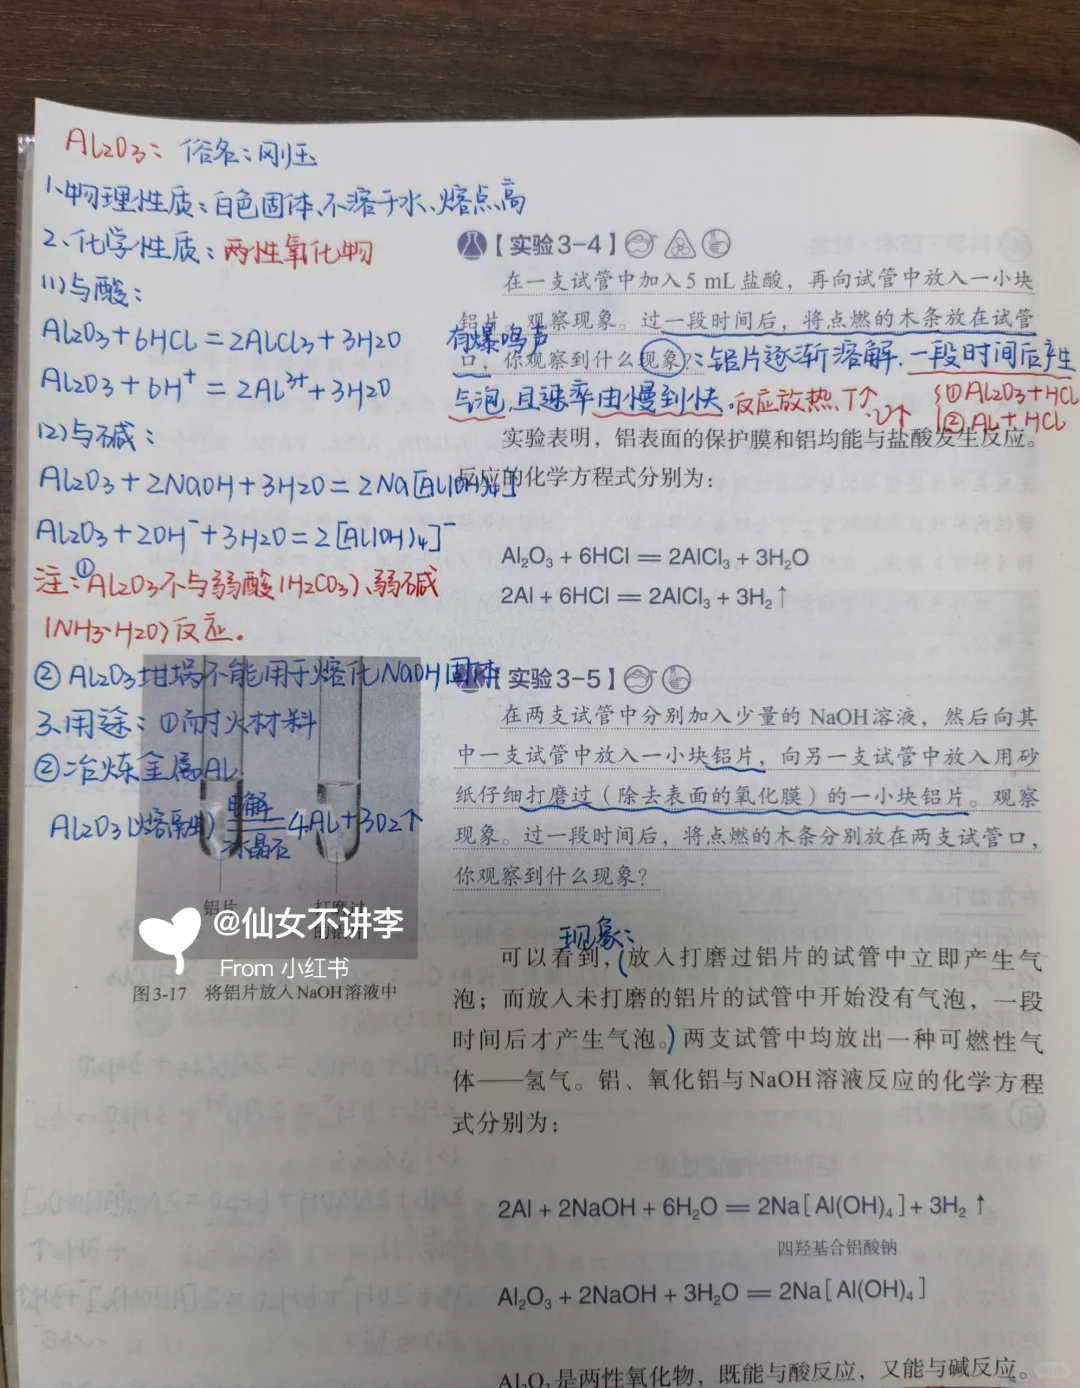 Al2O3：俗名：刚玉
1、物理性质：白色固体、不溶于水、熔点高
2、化学性质：两性氧化物
(1)与酸：
Al2O3+6HCl=2AlCl3+3H2O
Al2O3+6H⁺=2Al³⁺+3H2O
(2)与碱：
Al2O3+2NaOH+3H2O=2Na[Al(OH)4]
Al2O3+2OH⁻+3H2O=2[Al(OH)4]⁻
注：①Al2O3不与弱酸(H2CO3)、弱碱
(NH3·H2O)反应。
②Al2O3坩埚不能用于熔化NaOH固体
3、用途：①耐火材料
②冶炼金属Al
Al2O3(熔融) 电解 冰晶石 4Al+3O2↑
铝片
打磨过
的铝片
@仙女不讲李
From 小红书
图3-17 将铝片放入NaOH溶液中
【实验3-4】
在一支试管中加入5 mL盐酸，再向试管中放入一小块
铝片。观察现象。过一段时间后，将点燃的木条放在试管
有爆鸣声
口，你观察到什么现象？：铝片逐渐溶解.一段时间后产生
气泡,且速率由慢到快.反应放热、T↑、V↑
①Al2O3+HCl
②Al+HCl
实验表明，铝表面的保护膜和铝均能与盐酸发生反应。
反应的化学方程式分别为：
Al₂O₃ + 6HCl == 2AlCl₃ + 3H₂O
2Al + 6HCl == 2AlCl₃ + 3H₂↑
【实验3-5】
在两支试管中分别加入少量的 NaOH溶液，然后向其
中一支试管中放入一小块铝片，向另一支试管中放入用砂
纸仔细打磨过（除去表面的氧化膜）的一小块铝片。观察
现象。过一段时间后，将点燃的木条分别放在两支试管口，
你观察到什么现象？
现象：
可以看到，(放入打磨过铝片的试管中立即产生气
泡；而放入未打磨的铝片的试管中开始没有气泡，一段
时间后才产生气泡。)两支试管中均放出一种可燃性气
体——氢气。铝、氧化铝与NaOH溶液反应的化学方程
式分别为：
2Al + 2NaOH + 6H₂O == 2Na[Al(OH)₄] + 3H₂↑
四羟基合铝酸钠
Al₂O₃ + 2NaOH + 3H₂O == 2Na[Al(OH)₄]
Al₂O₃是两性氧化物，既能与酸反应，又能与碱反应。